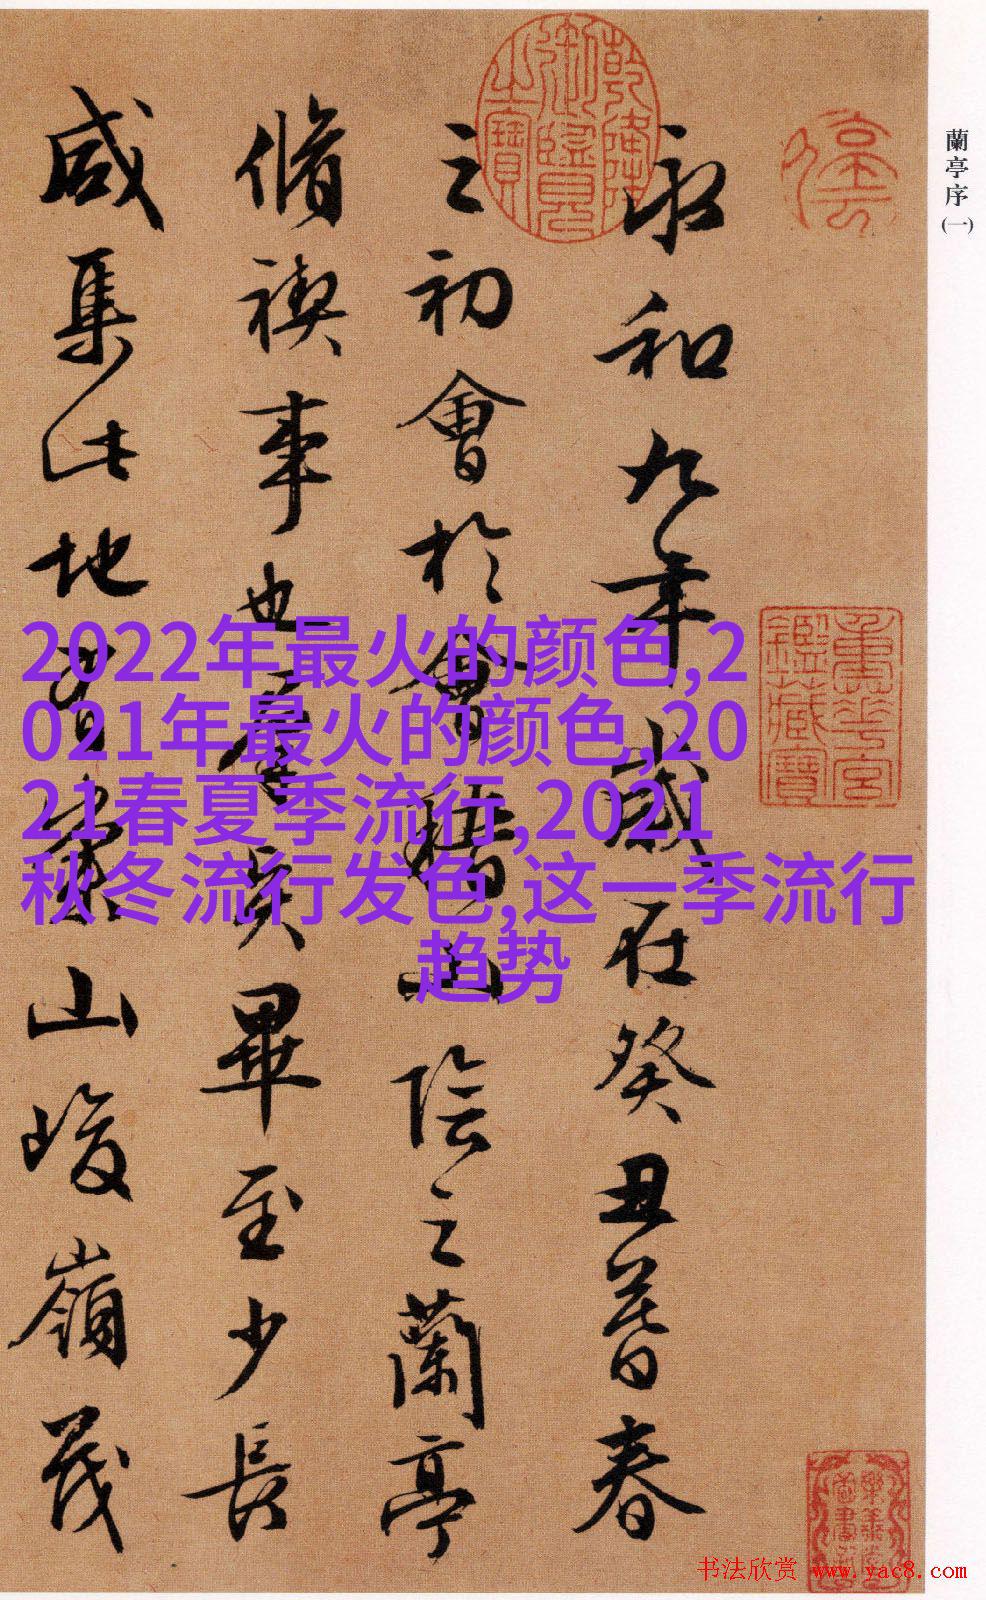 蘭亭序
(一)
乾隆御覽之寶
重華宮鑑藏寶
永和九年歲在癸丑暮春
之初會於會稽山陰之蘭亭
脩禊事也羣賢畢至少長
咸集此地有崇山峻嶺茂
2022年最火的颜色,2
021年最火的颜色,20
21春夏季流行,2021
秋冬流行发色,这一季流行
趋势
书法欣赏 www.yac8.com